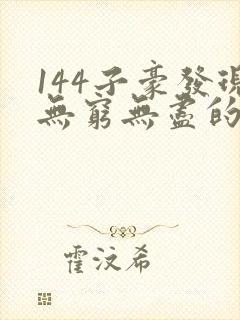 144子豪發現
無窮無盡的
霍汶希